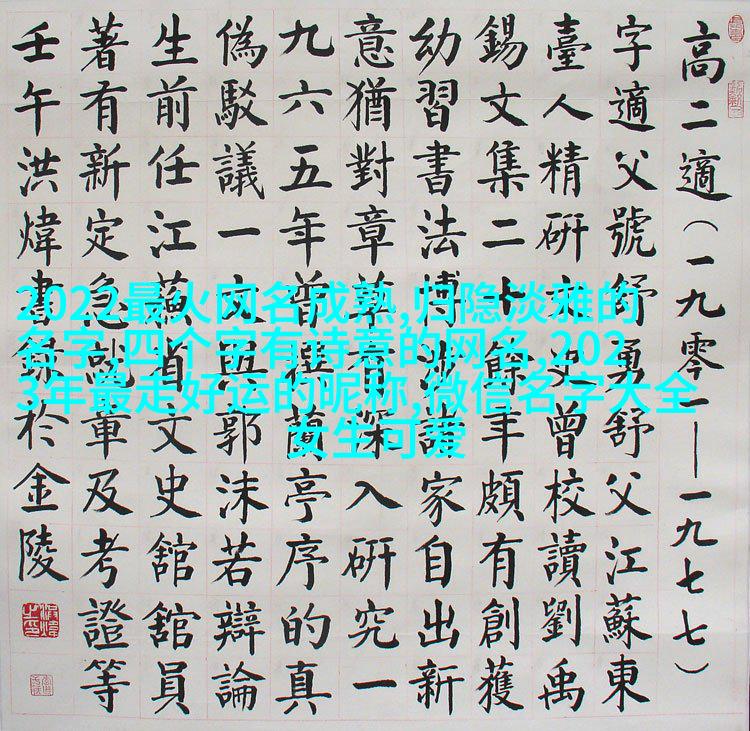 高二適（一九零一——一九七七）
字適父號紓勇舒父江蘇東
臺人精研文史曾校讀劉禹
錫文集二十餘年頗有創獲
幼習書法博涉諸家自出新
意猶對章草有深入研究一
九六五年曾撰蘭亭序的真
偽駁議一文與郭沫若辯論
生前任江蘇省文史舘舘員
著有新定急就章及考證等
壬午洪煒書錄於金陵
2022最火网名成熟,归隐淡雅的
名字,四个字有诗意的网名,202
3年最走好运的昵称,微信名字大全
女生可爱